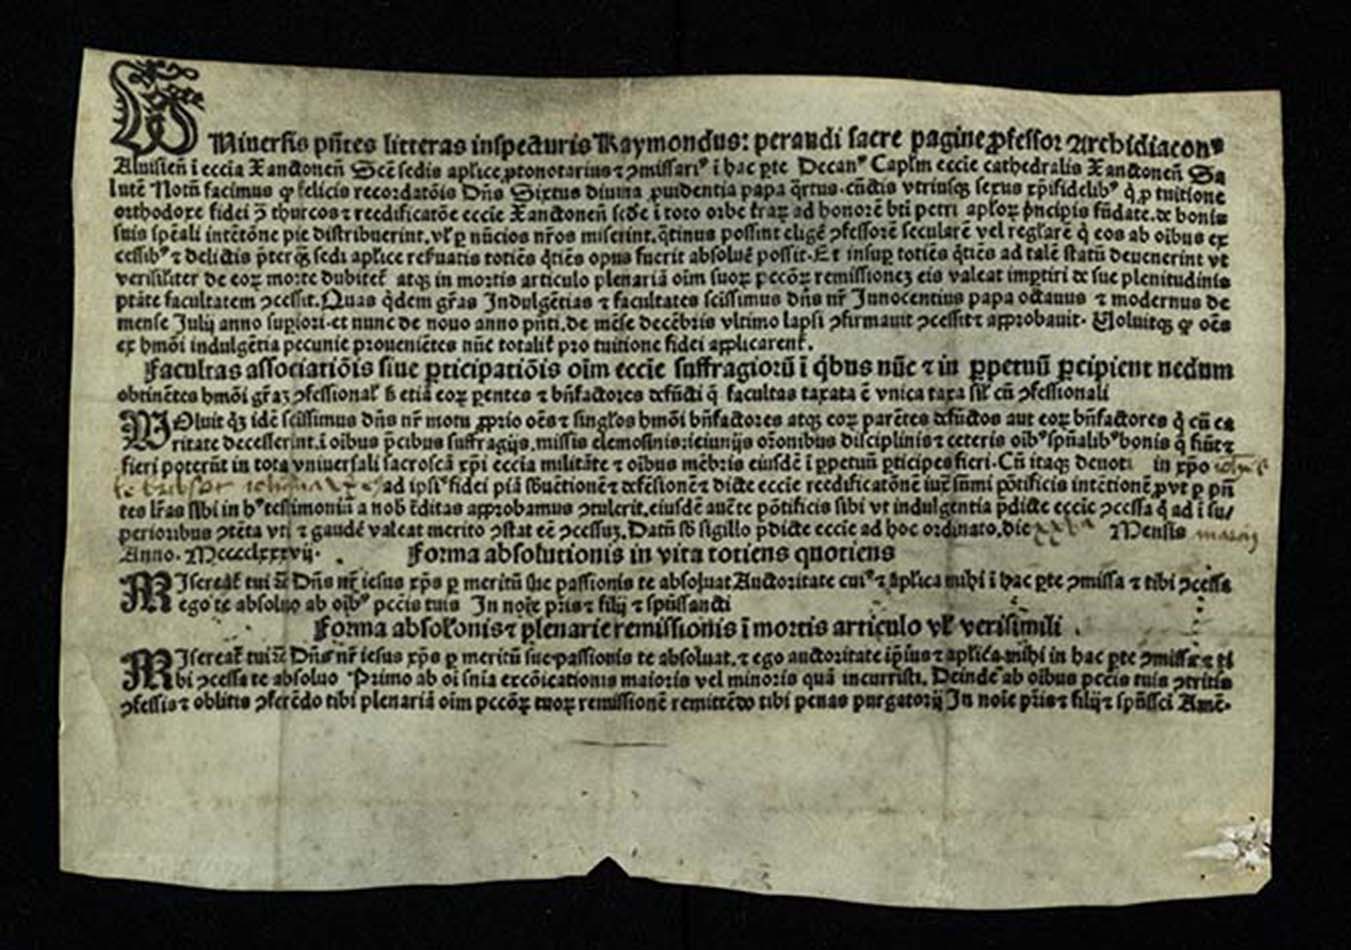 Vniuersis p̄ntes litteras inspecturis Raymondus: peraudi sacre pagine ꝓfessor Archidiaconꝰ
Aluisien̄ ī eccĺia Xanctonen̄ Scē sedis aplice ꝓtonotariꝰ ⁊ ꝯmissariꝰ ī hac ꝑte Decanꝰ Capĺm eccĺie cathedralis Xanctonen̄ Sa
lutē Notū facimus ꝙ felicis recordatōis Dn̄s Sixtus diuina ꝓuidentia papa q̄rtus. cūctis vtriusqꝫ sexus xp̄ifidelibꝰ q̇ ꝓ tuitione
orthodoxe fidei ꝯ̄ thurcos ⁊ reedificatōe eccĺie Xanctonen̄ scd̄e ī toto orbe t̄raꝝ ad honorē bt̄i petri apĺoꝝ p̄ncipis fūdate. de bonis
suis spēali intētōne pie distribuerint. vĺ ꝑ nūcios nr̄os miserint. q̄tinus possint eligē ꝯfessorē secularē vel regĺarē q̇ eos ab oībus ex
cessibꝰ ⁊ delictis p̄terqꝫ sedi aplice res̄uatis totiēs q̄tiēs opus fuerit absoluē possit. Et insuꝑ totiēs q̄tiēs ad talē statū deuenerint vt
verisiĺiter de eoꝝ morte dubitet̄ atqꝫ in mortis articulo plenariā oīm suoꝝ pecc̄oꝝ remissionez eis valeat imꝑtiri de sue plenitudinis
ptāte facultatem ꝯcessit. Quas q̇dem gr̄as Indulgētias ⁊ facultates scīssimus dn̄s nr̄ Innocentius papa octauus ⁊ modernus de
mense Julij anno suꝑiori. et nunc de nouo anno pn̄ti. de mēse decēbris vltimo lapsi ꝯfirmauit ꝯcessit ⁊ approbauit. Uoluitqꝫ ꝙ oēs
ex hm̄oi indulgētia pecunie proueniētes nūc totalit̄ pro tuitione fidei applicarent̄.
Facultas associatiōis siue ꝑticipatiōis oīm eccĺie suffragiorū ī q̇bus nūc ⁊ in ꝑpetuū ꝑcipient nedum
obtinētes hm̄oi gr̄aꝫ ꝯfessional̄ sꝫ etiā eoꝝ ꝑentes ⁊ bn̄factores defūcti q̇ facultas taxata ē vnica taxa siĺ cū ꝯfessionali
Uoluit qꝫ idē scīssimus dn̄s nr̄ motu ꝓprio oēs ⁊ singĺos hm̄oi bn̄factores atqꝫ eoꝝ parētes defūctos aut eoꝝ bn̄factores q̇ cū ca
ritate decesserint. ī oībus p̄cibus suffragijs. missis elemosinis: ieiunijs or̄onibus disciplinis ⁊ ceteris oībꝰ spūalibꝰ bonis q̇ fiūt ⁊
fieri poterūt in tota vniuersali sacroscā xp̄i eccĺia militāte ⁊ oībus mēbris eiusdē ī ꝑpetuū ꝑticipes fieri. Cū itaqꝫ deuoti in xp̄o
ad ipsiꝰ fidei piā sb̄uētionē ⁊ defēsionē ⁊ dicte eccĺie reedificatōnē iux̄ sūmi pōtificis intētionē ꝓut ꝑ pn̄
tes lr̄as sibi in hꝰ testimoniū a nob̄ ꝯditas approbamus ꝯtulerit. eiusdē auc̄te pōtificis sibi vt indulgentia p̄dicte eccĺie ꝯcessa q̇ ad ī su/
perioribus ꝯtēta vti ⁊ gaudē valeat merito ꝯstat eē ꝯcessuꝫ. Datū sb̄ sigillo p̄dicte eccĺie ad hoc ordinato. die Mensis
Anno. Mcccclxxxvij. Forma absolutionis in vita totiens quotiens
Misereat̄ tui ꝛc̄ Dn̄s nr̄ iesus xp̄s ꝑ meritū sue passionis te absoluat Auctoritate cuiꝰ ⁊ aplica mihi ī hac ꝑte ꝯmissa ⁊ tibi ꝯcessa
ego te absoluo ab oībꝰ pecc̄is tuis In noīe pr̄is ⁊ filij ⁊ spūssancti
Forma absolōnis ⁊ plenarie remissionis ī mortis articulo vĺ verisimili.
Misereat̄ tui ꝛc̄ Dn̄s nr̄ iesus xp̄s ꝑ meritū sue passionis te absoluat. ⁊ ego auctoritate ip̄ius ⁊ aplica mihi in hac ꝑte ꝯmissa ⁊ ti
bi ꝯcessa te absoluo Primo ab oī snīa excōicationis maioris vel minoris quā incurristi. Deinde ab oībus pecc̄is tuis ꝯtritis
ꝯfessis ⁊ oblitis ꝯferēdo tibi plenariā oīm pecc̄oꝝ tuoꝝ remissionē remittēdo tibi penas purgatorij In noīe pr̄is ⁊ filij ⁊ spūssci Amē.